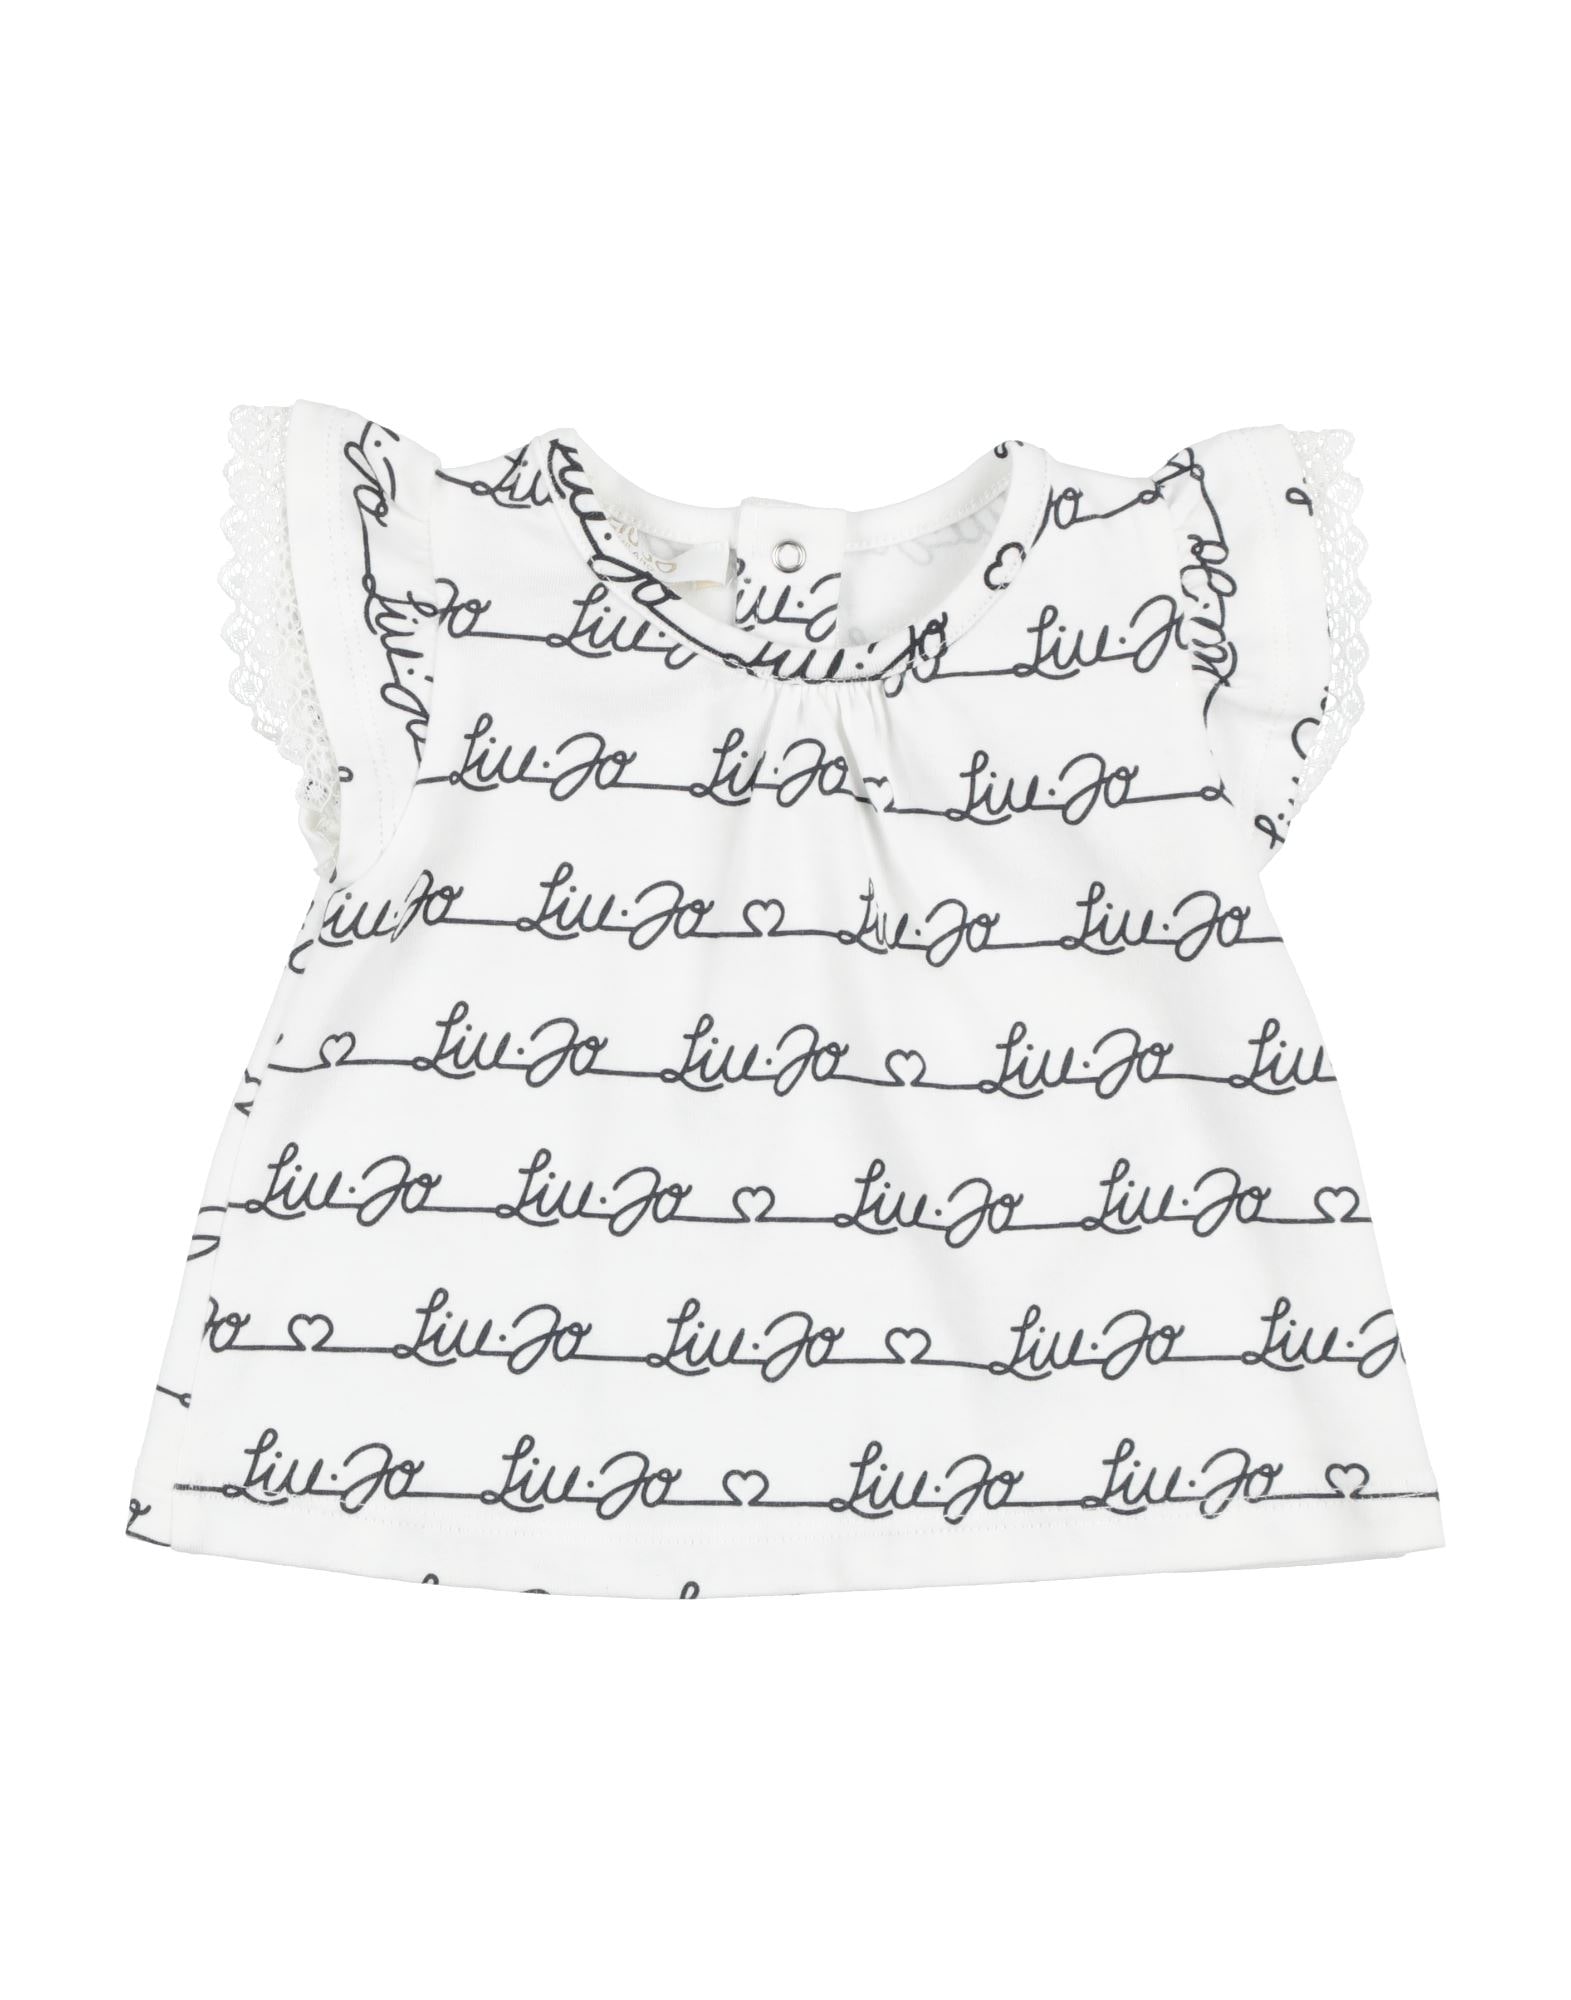 Liu
Jo Liu·J Liu·J Liu·J
Liu·Jo Liu·Jo Liu·Jo
Liu·Jo Liu·Jo Liu·Jo Liu·Jo
Liu·Jo Liu·Jo Liu·Jo Liu
Liu·Jo Liu·Jo Liu·Jo Liu·Jo
Jo Liu·Jo Liu·Jo Liu·Jo Liu·J
Liu·Jo Liu·Jo Liu·Jo Liu·Jo